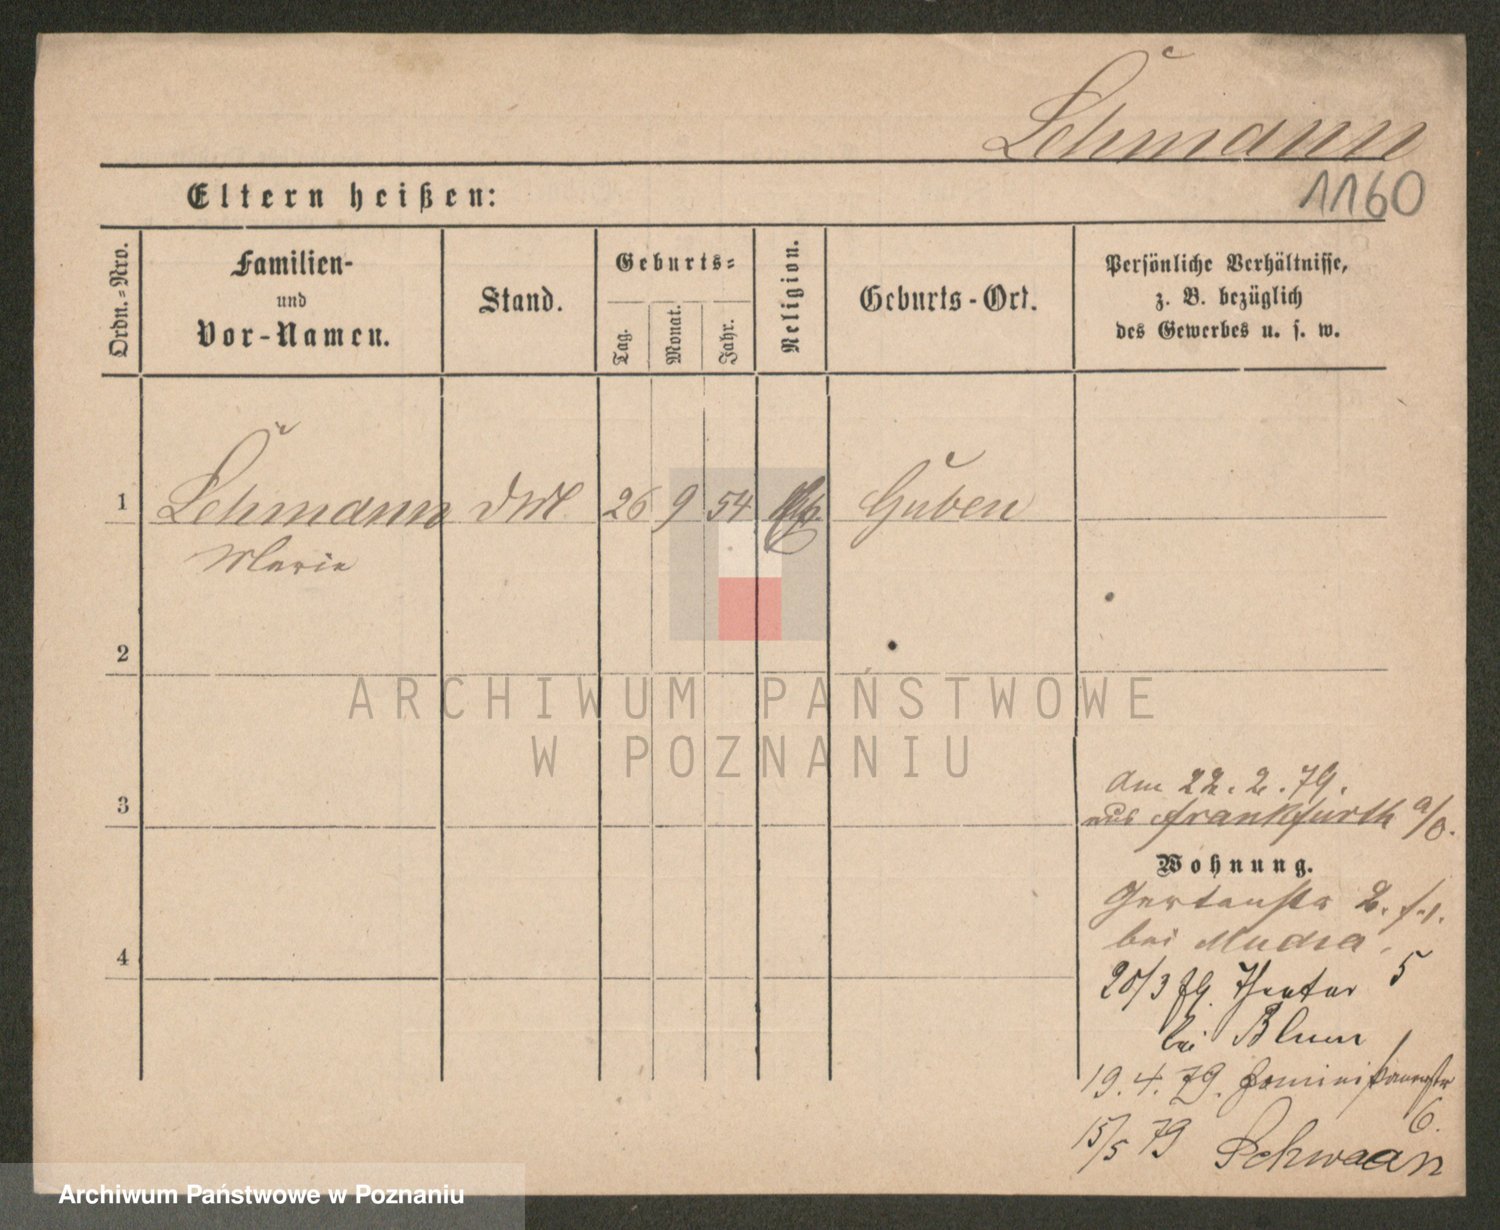 Lehmann
1160
Eltern heißen:
Ordn.-Nro.
Familien-
und
Vor-Namen.
Stand.
Geburts-
Tag.
Monat.
Jahr.
Religion.
Geburts-Ort.
Persönliche Verhältnisse,
z. B. bezüglich
des Gewerbes u. s. w.
1
Lehmann
26
9
54
Guben
Marie
2
ARCHIWUM PAŃSTWOWE
W POZNANIU
3
am 22. 2. 79.
aus Frankfurth a/O.
Wohnung.
2.
bei Mudra.
4
20/3 79. Theater 5
bei Blum
19. 4. 79. Dominikanerstr
6.
15/5 79
Archiwum Państwowe w Poznaniu